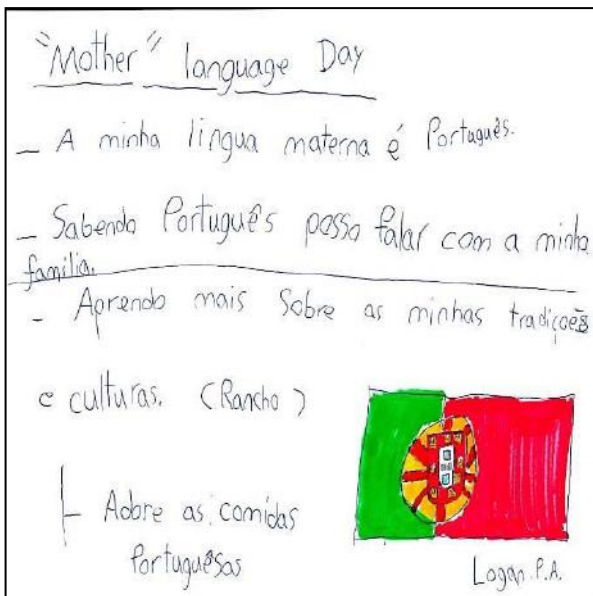 "Mother" language Day
- A minha lingua materna é Português.
- Sabendo Português posso falar com a minha
familia.
- Aprendo mais Sobre as minhas tradições
e culturas. (Rancho)
- Adore as comidas
Portuguêsas
Logan.P.A.